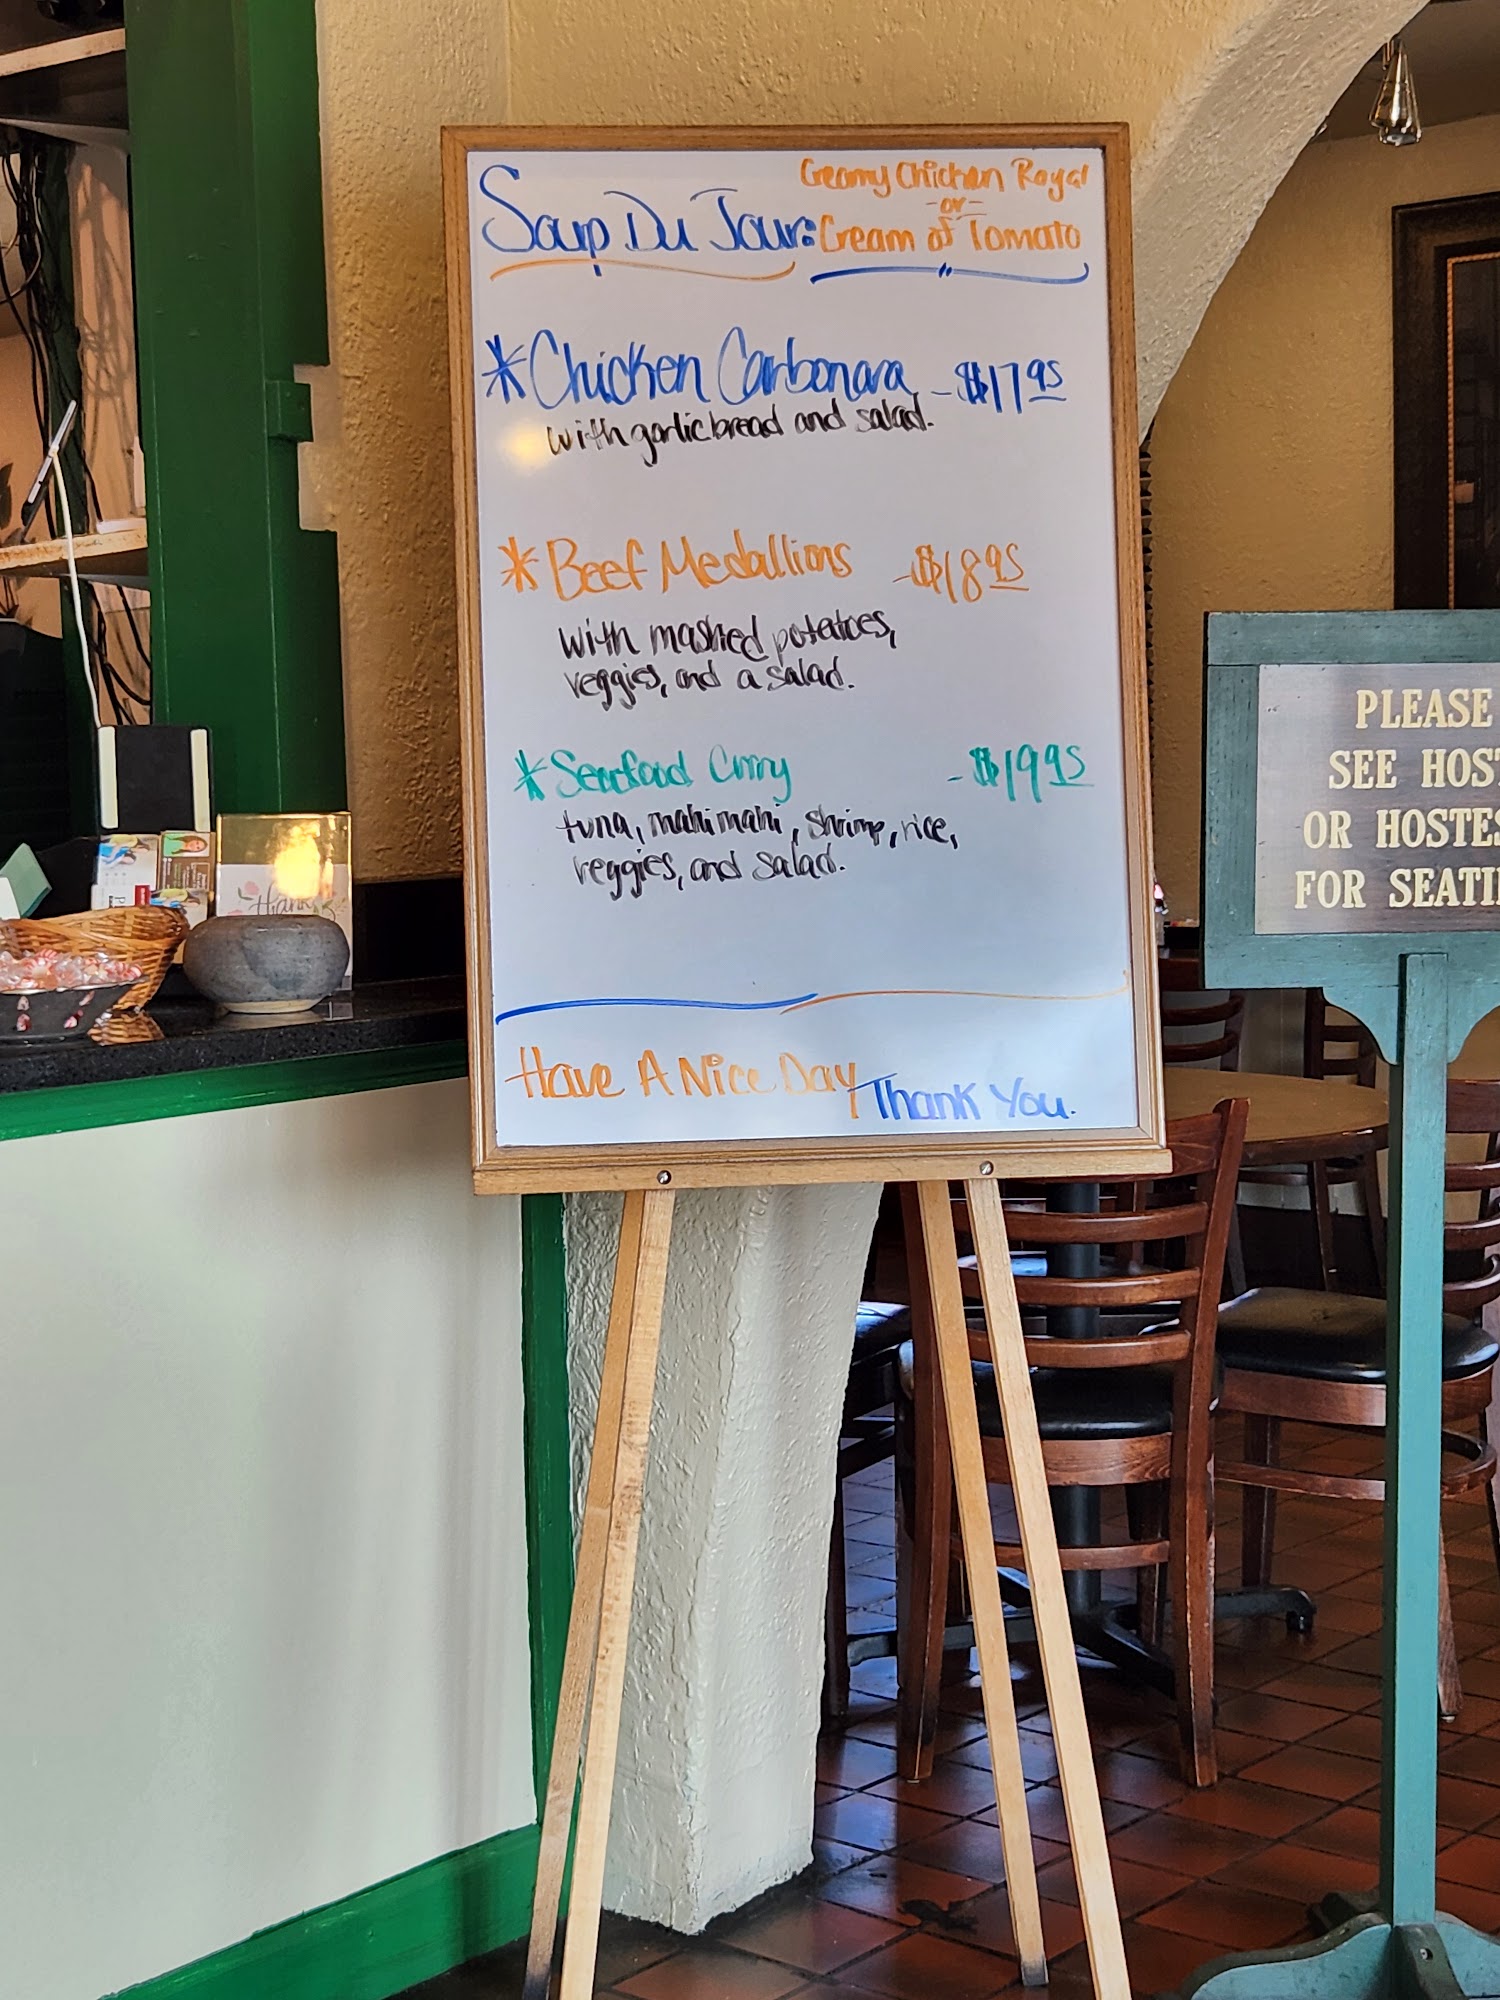 Creamy Chicken Royal
-or-
Soup Du Jour: Cream of Tomato
*Chicken Carbonara - $17.95
with garlic bread and salad.
*Beef Medallions - $18.95
with mashed potatoes,
veggies, and a salad.
*Seafood Curry - $19.95
tuna, mahi mahi, shrimp, rice,
veggies, and salad.
Have A Nice Day Thank You.
PLEASE
SEE HOST
OR HOSTES
FOR SEATI
Thank